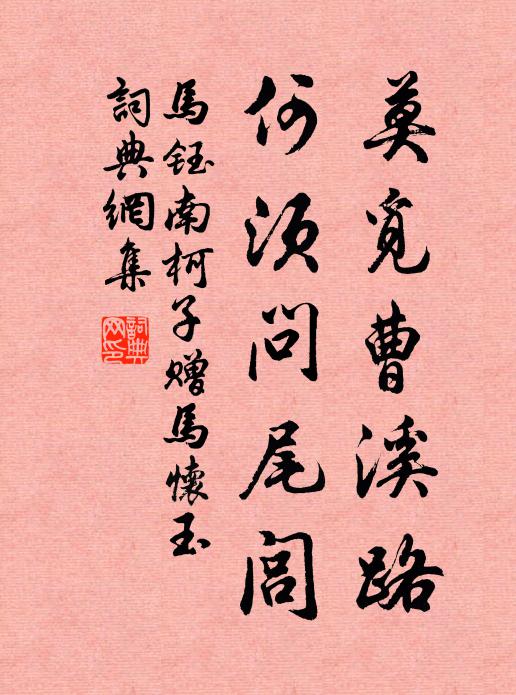 莫覓曹溪路
何須問尾閭
馬鈺南柯子贈馬懷玉
詞典網集
詞典网印